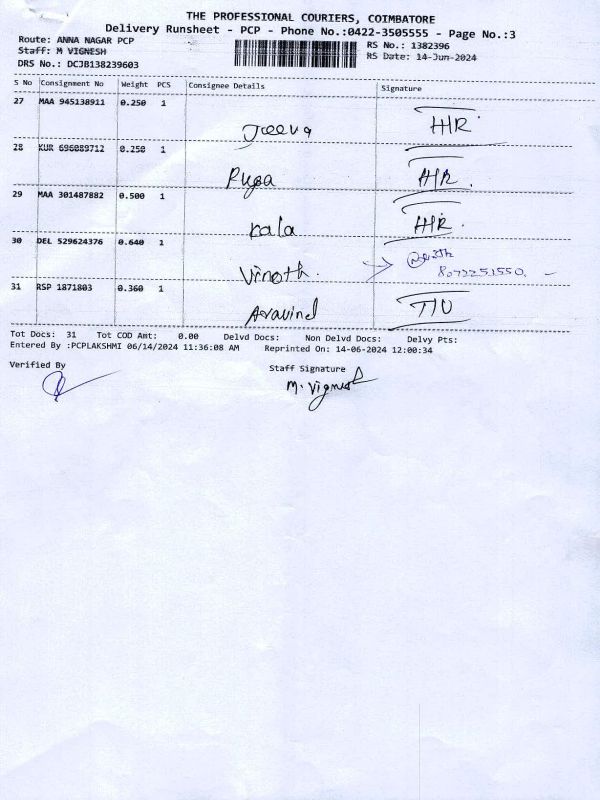 THE PROFESSIONAL COURIERS, COIMBATORE
Delivery Runsheet - PCP - Phone No.:0422-3505555 - Page No.:3
Route: ANNA NAGAR PCP
Staff: M VIGNESH
DRS No.: DCJB138239603
RS No.: 1382396
RS Date: 14-Jun-2024
S No Consignment No Weight PCS Consignee Details Signature
27 MAA 945138911 0.250 1
Jeeva HR
28 KUR 696089712 0.250 1
Puja HR
29 MAA 301487882 0.500 1
Kala HR
30 DEL 529624376 0.640 1
Vinoth 8072251550
31 RSP 1871803 0.360 1
Aravind
Tot Docs: 31 Tot COD Amt: 0.00 Delvd Docs: Non Delvd Docs: Delvy Pts:
Entered By :PCPLAKSHMI 06/14/2024 11:36:08 AM Reprinted On: 14-06-2024 12:00:34
Verified By Staff Signature
M. Vignesh